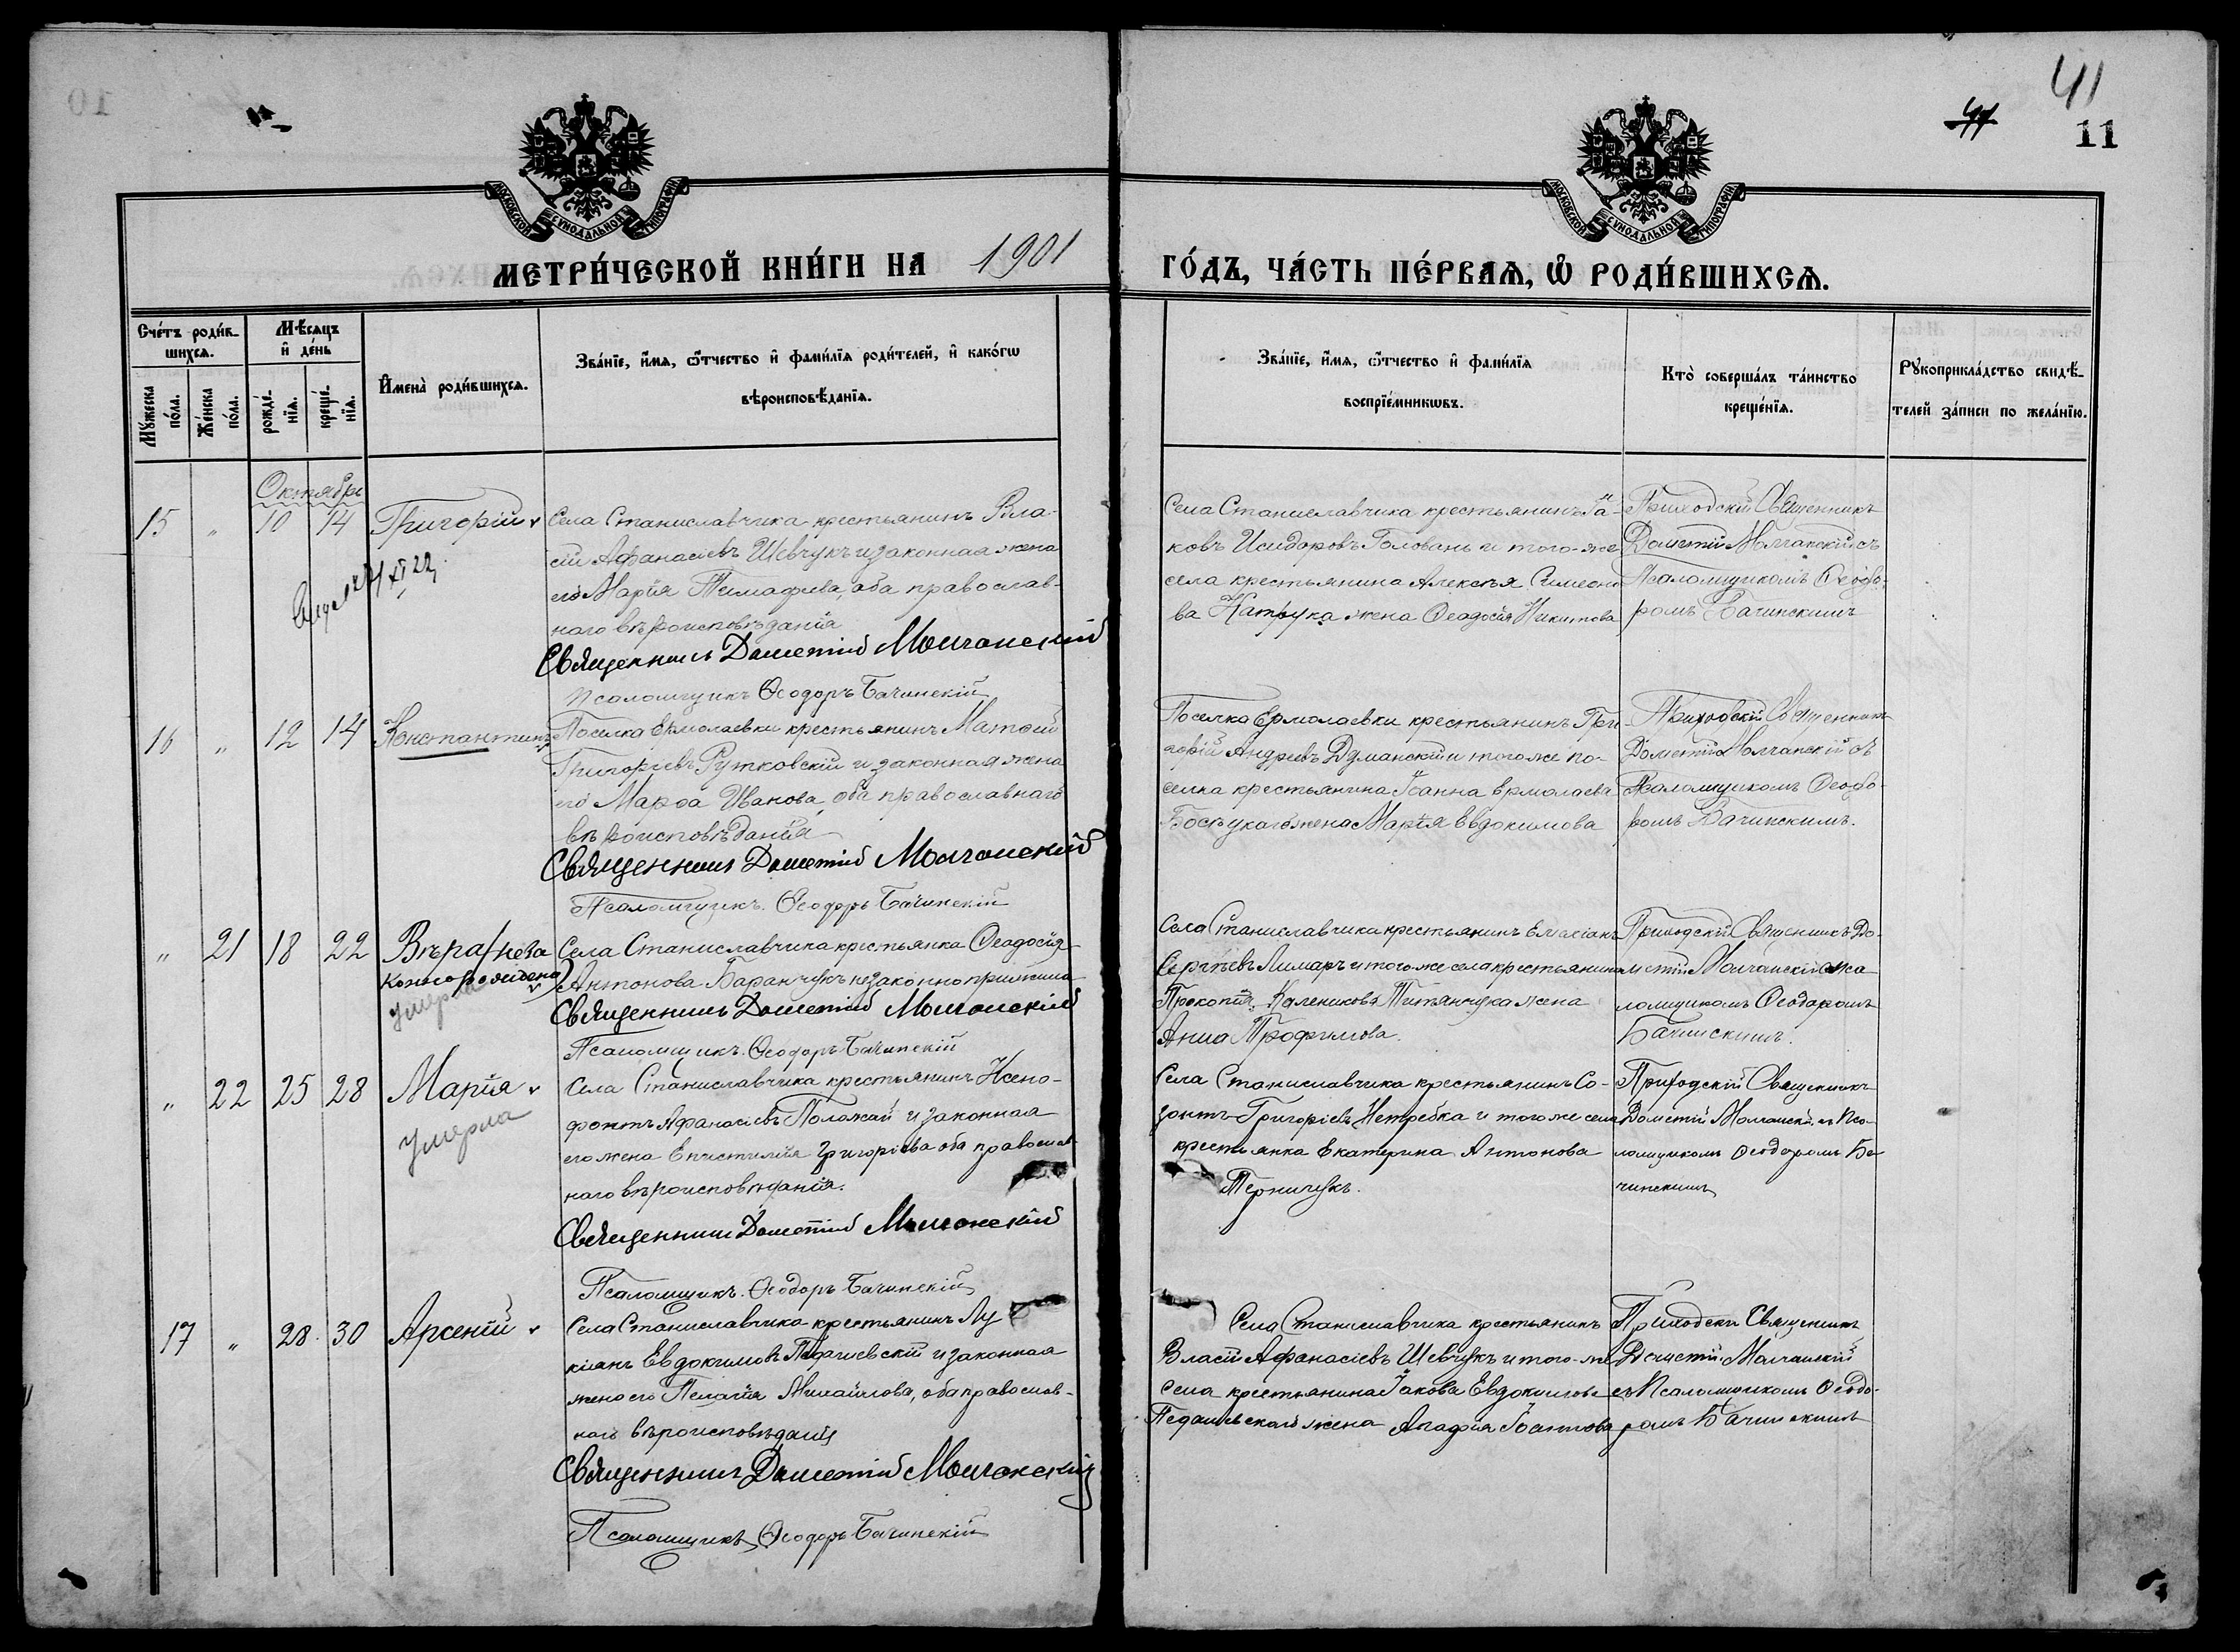 10
41
11
МОСКОВСКОЙ СУНОДАЛЬНОЙ ТИПОГРАФІИ
МОСКОВСКОЙ СУНОДАЛЬНОЙ ТИПОГРАФІИ
МЕТРИ́ЧЕСКОЙ КНИ́ГИ НА 1901
ГО́ДЪ, ЧА́СТЬ ПЕ́РВАѦ, Ѡ҆ РОДИ́ВШИХСѦ.
Сче́тъ роди́в-
шихсѧ.
Мꙋжеска по́ла.
Же́нска по́ла.
Мѣ́сѧцъ
и҆ де́нь
рожде́-
нїѧ.
креще́-
нїѧ.
И҆мена̀ роди́вшихсѧ.
Зва́нїе, и҆́мѧ, ѻ҆́тчество и҆ фами́лїѧ роди́телей, и҆ како́гѡ
вѣроисповѣ́данїѧ.
Зва́нїе, и҆́мѧ, ѻ҆́тчество и҆ фами́лїѧ
воспрїе́мникѡвъ.
Кто̀ соверша́лъ та́инство
креще́нїѧ.
Рꙋкоприкла́дство свидѣ́-
телей за́писи по жела́нїю.
Октябрь
15 " 10 14 Григорій
Села Станиславчика крестьянинъ Вла-
сій Афанасіевъ Шевчукъ и законная жена
его Марія Тимофиева, оба православ-
наго вѣроисповѣданія
Священникъ Дометій Молчанскій
Псаломщикъ Ѳеодоръ Бачинскій
Села Станиславчика крестьянинъ Іа-
ковъ Исидоровъ Головань и того-же
села крестьянина Алексѣя Симеоно
ва Катрука жена Ѳеодосія Никитова
Приходскій Священникъ
Дометій Молчанскій съ
Псаломщикомъ Ѳеодо-
ромъ Бачинскимъ
16 " 12 14 Константинъ
Поселка Ермолаевки крестьянинъ Матѳій
Григоріевъ Рутковскій и законная жена
его Марѳа Иванова, оба православнаго
вѣроисповѣданія
Священникъ Дометій Молчанскій
Псаломщикъ Ѳеодоръ Бачинскій
Поселка Ермолаевки крестьянинъ Гри-
горій Андреевъ Думанскій и того же по-
селка крестьянина Іоанна Ермолаева
жена Марія Евдокимова
Приходскій Священникъ
Дометій Молчанскій съ
Псаломщикомъ Ѳеодо-
ромъ Бачинскимъ.
" 21 18 22 Вѣра (неза
коннорождена)
умерла
Села Станиславчика крестьянка Ѳеодосія
Антонова Баранчукъ незаконно прижила
Священникъ Дометій Молчанскій
Псаломщикъ Ѳеодоръ Бачинскій
Села Станиславчика крестьянинъ
Сергѣевъ Лимаръ и того же села крестьянина
Прокопія Каленикова Титянчука жена
Анна Трофимова.
Приходскій Священникъ До-
метій Молчанскій съ Пса
ломщикомъ Ѳеодоромъ
Бачинскимъ.
" 22 25 28 Марія
Умерла
Села Станиславчика крестьянинъ Ксено-
фонтъ Афанасіевъ Полажай и законная
его жена Епистимія Григоріева оба православ-
наго вѣроисповѣданія.
Священникъ Дометій Молчанскій
Псаломщикъ Ѳеодоръ Бачинскій
Села Станиславчика крестьянинъ Со-
зонтъ Григоріевъ Нетребка и того же села
крестьянка Екатерина Антонова
Терничукъ.
Приходскій Священникъ
Дометій Молчанскій съ Пса-
ломщикомъ Ѳеодоромъ Ба-
чинскимъ
17 " 28 30 Арсеній
Села Станиславчика крестьянинъ Лу
кіянъ Евдокимовъ Педашевскій и законная
жена его Пелагія Михайлова, оба православ-
наго вѣроисповѣданія
Священникъ Дометій Молчанскій
Псаломщикъ Ѳеодоръ Бачинскій
Села Станиславчика крестьянинъ
Власій Афанасіевъ Шевчукъ и того-же
села крестьянина Іакова Евдокимова
Педашевскаго жена Агафія Іоаннова
Приходскій Священникъ
Дометій Молчанскій
съ Псаломщикомъ Ѳеодо-
ромъ Бачинскимъ